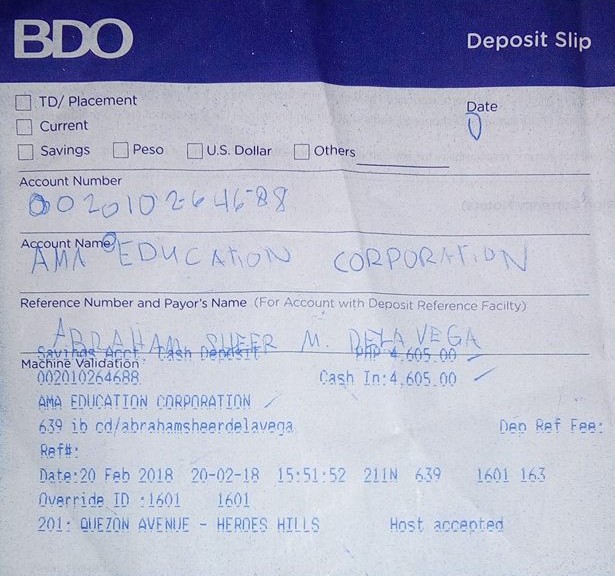 BDO
Deposit Slip
TD/ Placement
Date
Current
Savings Peso U.S. Dollar Others
Account Number
002010264688
Account Name
AMA EDUCATION CORPORATION
Reference Number and Payor's Name (For Account with Deposit Reference Facilty)
ABRAHAM SHEER M. DELA VEGA
Savings Acct. Cash Deposit PHP 4,605.00
Machine Validation
002010264688 Cash In:4,605.00
AMA EDUCATION CORPORATION
639 ib cd/abrahamsheerdelavega Dep Ref Fee:
Ref#:
Date:20 Feb 2018 20-02-18 15:51:52 211N 639 1601 163
Override ID :1601 1601
201: QUEZON AVENUE - HEROES HILLS Host accepted